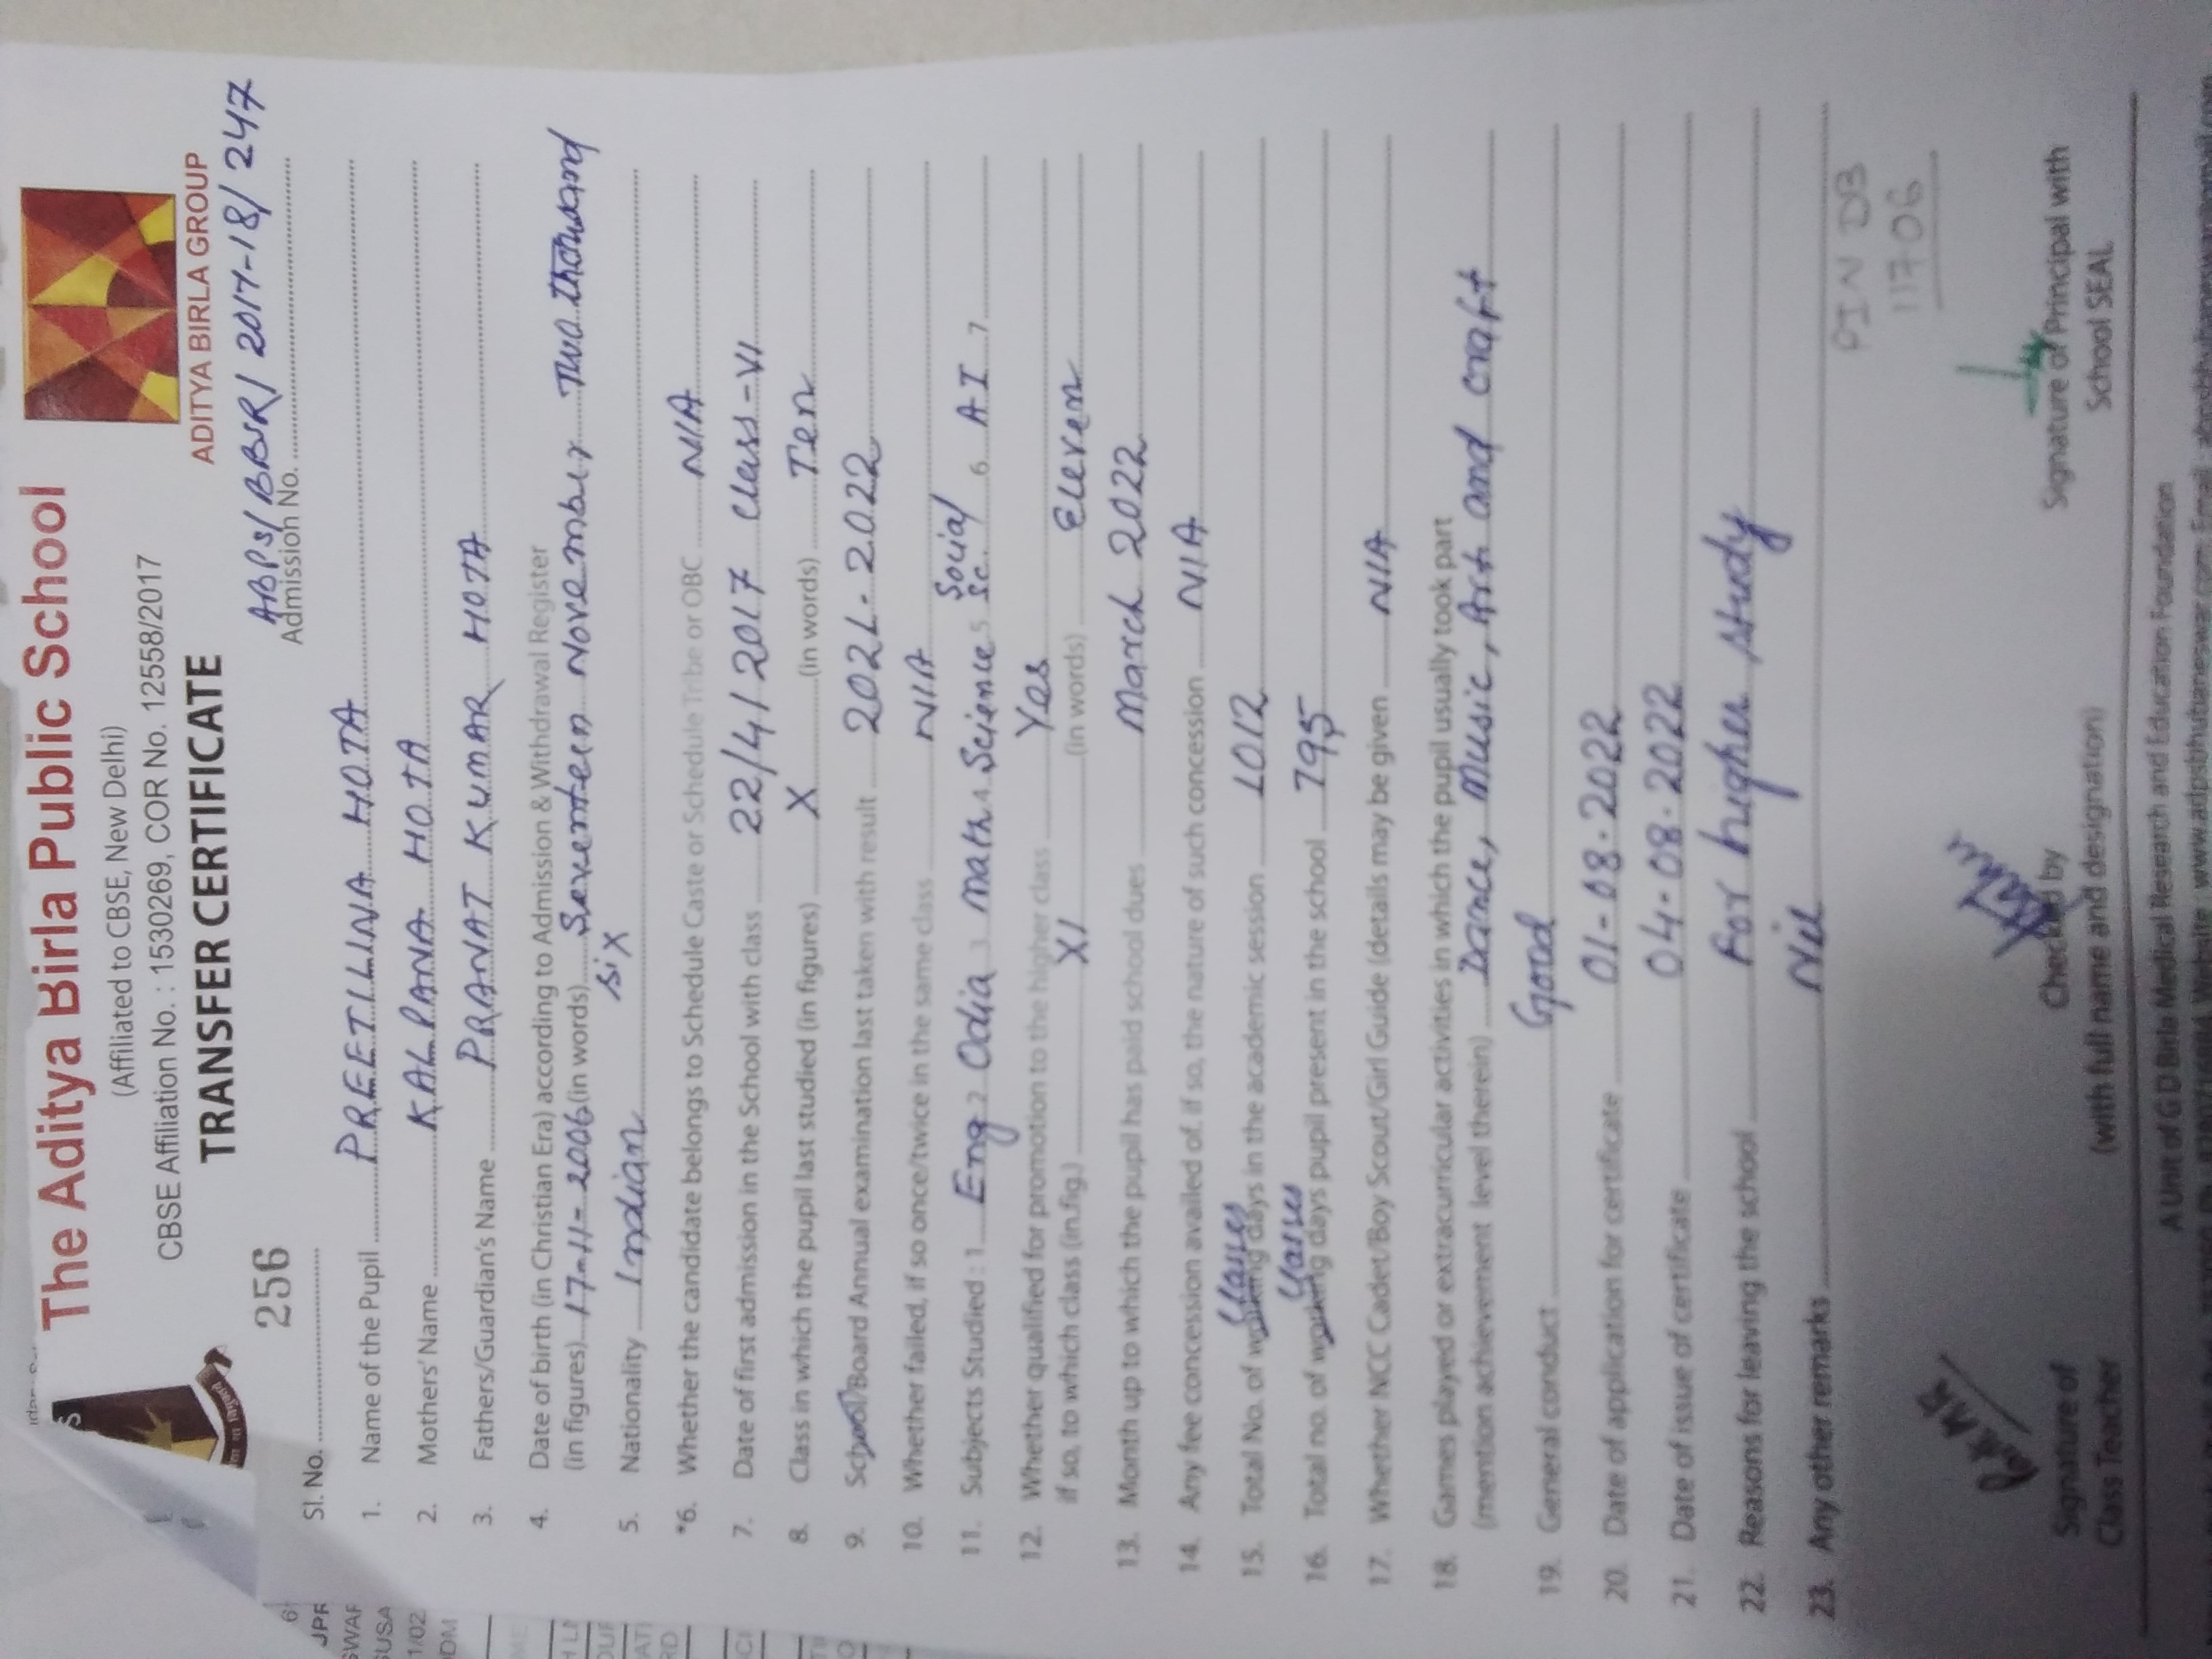 The Aditya Birla Public School
(Affiliated to CBSE, New Delhi)
CBSE Affiliation No. : 1530269, COR No. 12558/2017
TRANSFER CERTIFICATE
ADITYA BIRLA GROUP
256
ABPS/BBSR/2017-18/247
Sl. No. Admission No.
1. Name of the Pupil PREETILINA HOTA
2. Mothers' Name KALPANA HOTA
3. Fathers/Guardian's Name PRANAT KUMAR HOTA
4. Date of birth (in Christian Era) according to Admission & Withdrawal Register
(in figures) 17-11-2006 (in words) Seventeen November Two thousand
six
5. Nationality Indian
*6. Whether the candidate belongs to Schedule Caste or Schedule Tribe or OBC N/A
7. Date of first admission in the School with class 22/4/2017 Class-VI
8. Class in which the pupil last studied (in figures) X (in words) Ten
9. School/Board Annual examination last taken with result 2021-2022
10. Whether failed, if so once/twice in the same class N/A
11. Subjects Studied : 1 Eng 2 Odia 3 math 4 Science 5 Social Sc. 6 AI 7
12. Whether qualified for promotion to the higher class Yes
if so, to which class (in fig.) XI (in words) Eleven
13. Month up to which the pupil has paid school dues March 2022
14. Any fee concession availed of, if so, the nature of such concession N/A
15. Total No. of working days in the academic session 1012
16. Total no. of working days pupil present in the school 795
17. Whether NCC Cadet/Boy Scout/Girl Guide (details may be given N/A
18. Games played or extracurricular activities in which the pupil usually took part
(mention achievement level therein) Dance, Music, Art and craft
19. General conduct Good
20. Date of application for certificate 01-08-2022
21. Date of issue of certificate 04-08-2022
22. Reasons for leaving the school For higher study
23. Any other remarks Nil
PIN DB
11706
Signature of
Class Teacher
Checked by
(with full name and designation)
Signature of Principal with
School SEAL
A Unit of G D Birla Medical Research and Education Foundation